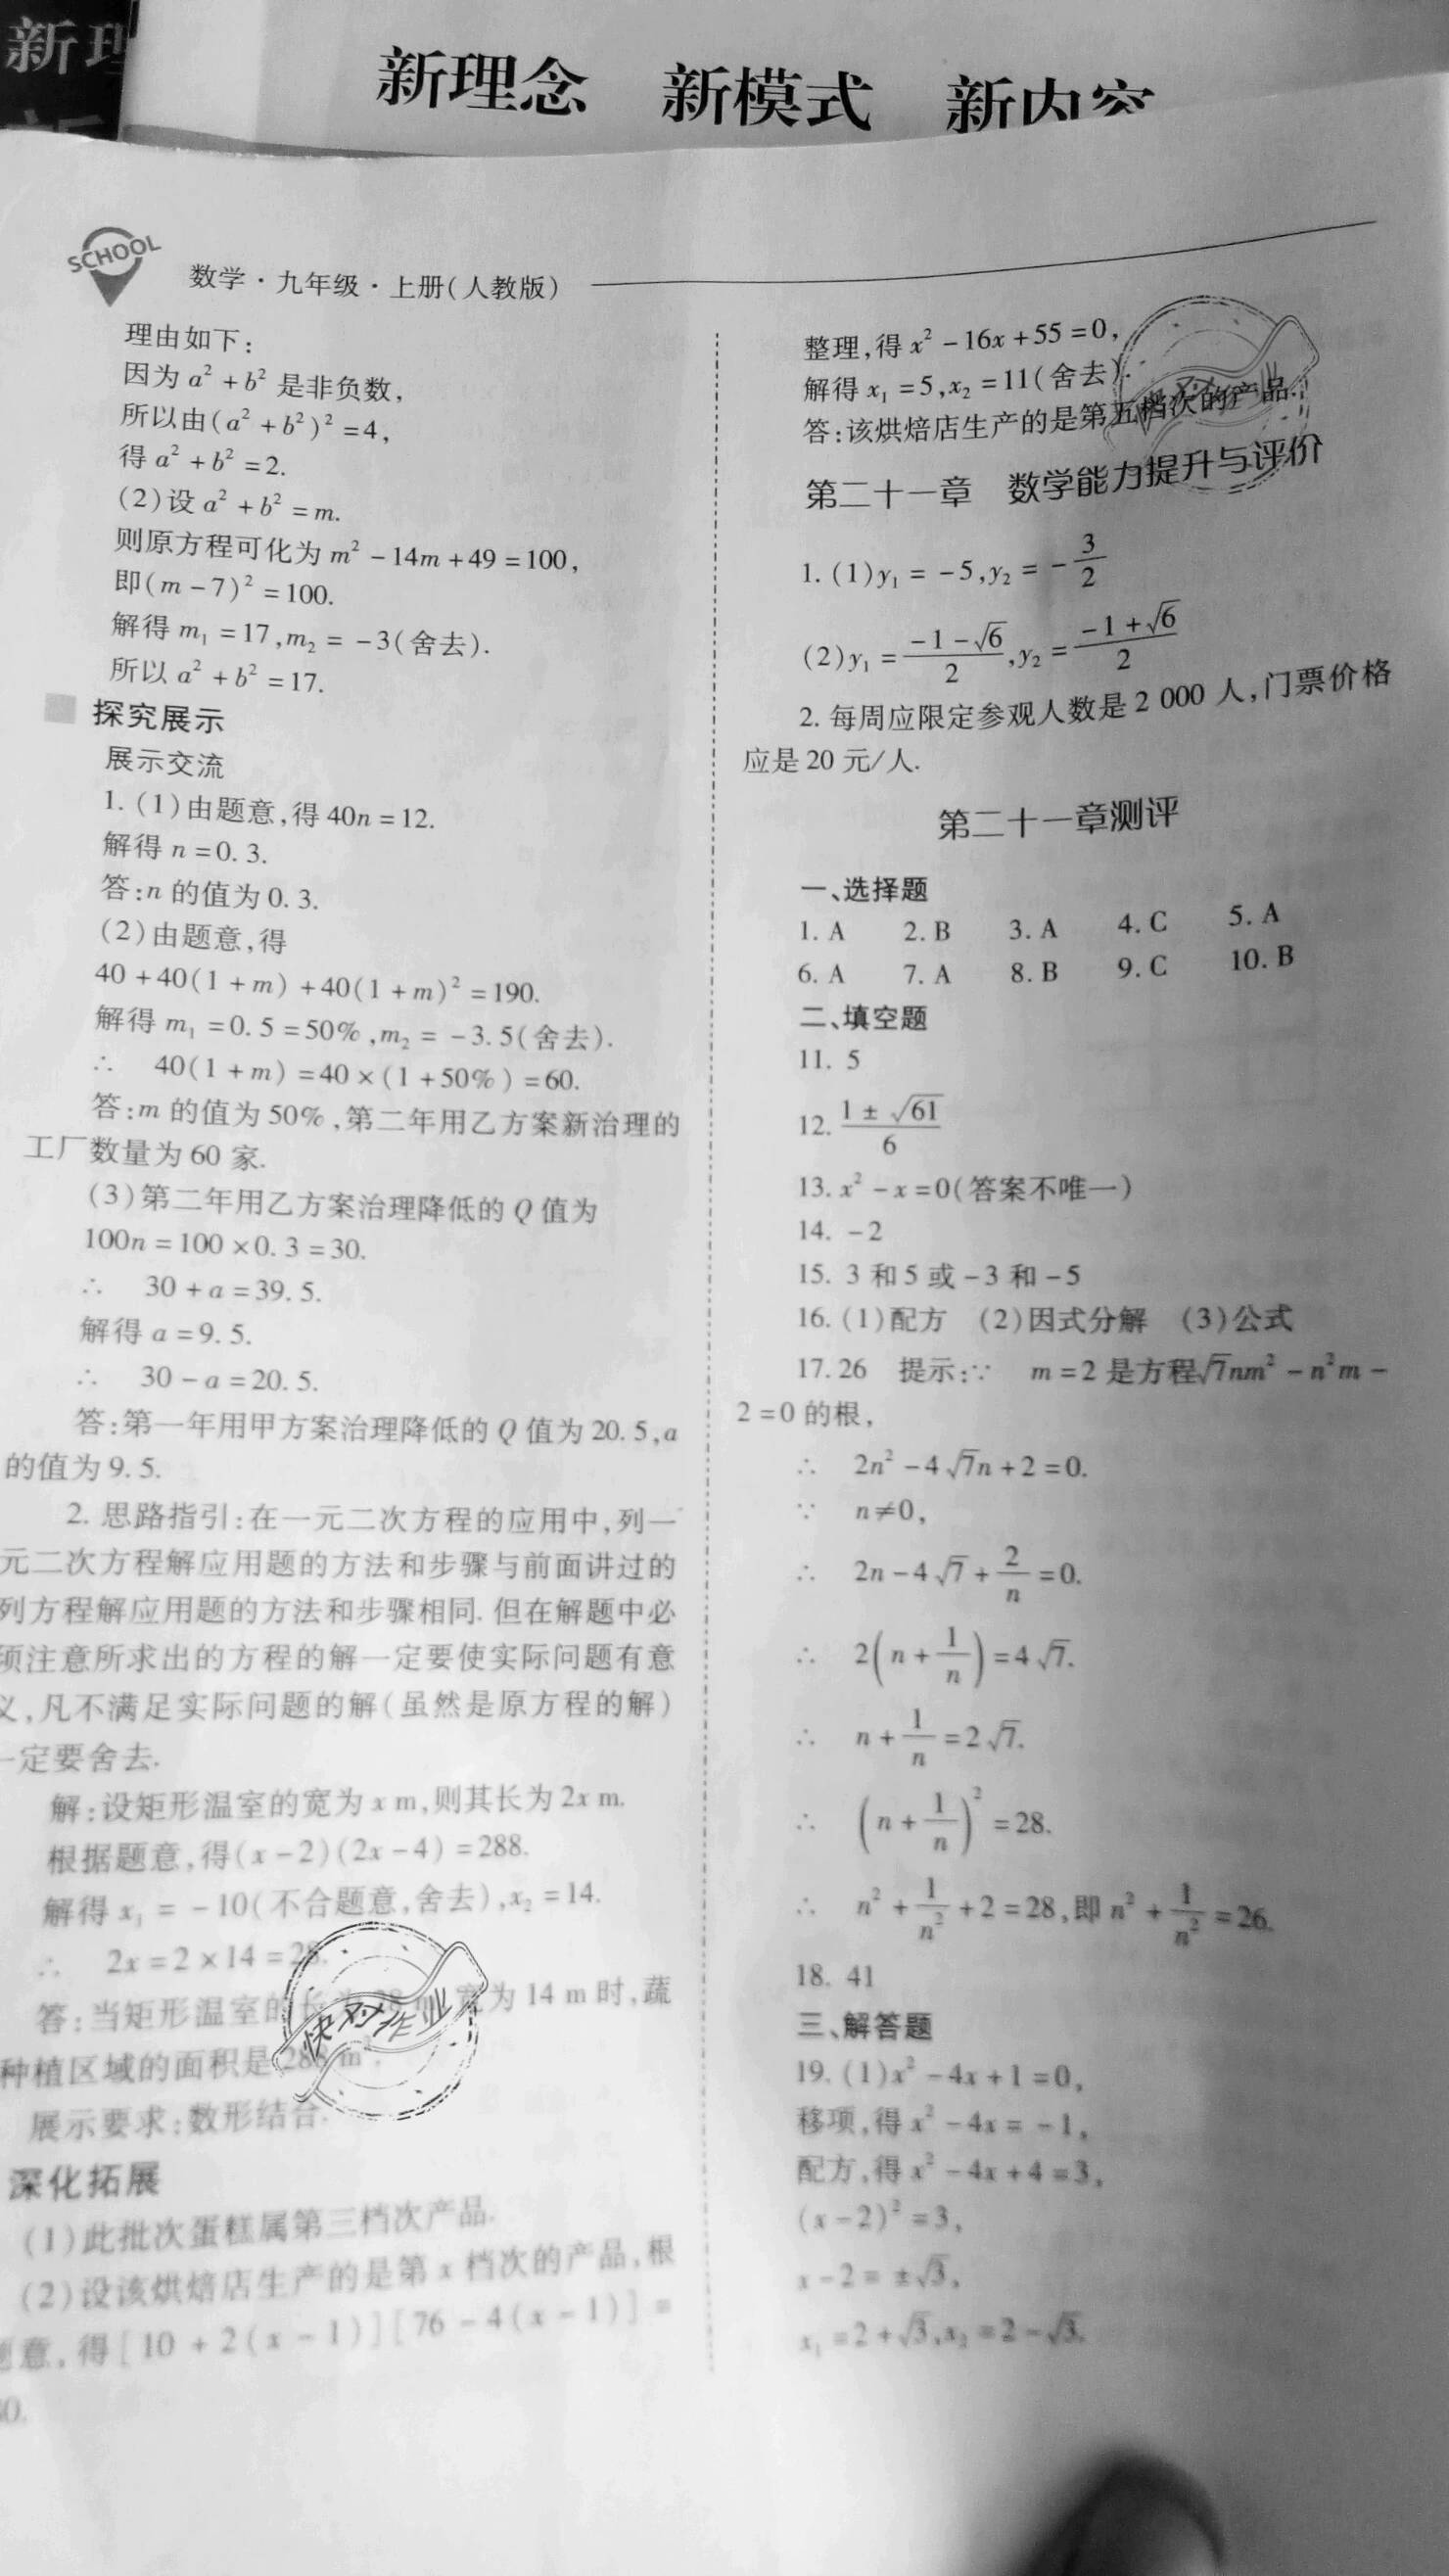 新理
新理念 新模式 新内容
SCHOOL
数学·九年级·上册(人教版)
理由如下:
因为 a² + b² 是非负数,
所以由(a² + b²)² = 4,
得 a² + b² = 2.
(2)设 a² + b² = m.
则原方程可化为 m² - 14m + 49 = 100,
即(m - 7)² = 100.
解得 m₁ = 17, m₂ = -3(舍去).
所以 a² + b² = 17.
探究展示
展示交流
1. (1)由题意,得 40n = 12.
解得 n = 0.3.
答:n 的值为 0.3.
(2)由题意,得
40 + 40(1 + m) + 40(1 + m)² = 190.
解得 m₁ = 0.5 = 50%, m₂ = -3.5(舍去).
∴ 40(1 + m) = 40 × (1 + 50%) = 60.
答:m 的值为 50%,第二年用乙方案新治理的
工厂数量为 60 家.
(3)第二年用乙方案治理降低的 Q 值为
100n = 100 × 0.3 = 30.
∴ 30 + a = 39.5.
解得 a = 9.5.
∴ 30 - a = 20.5.
答:第一年用甲方案治理降低的 Q 值为 20.5, a
的值为 9.5.
2. 思路指引:在一元二次方程的应用中,列一
元二次方程解应用题的方法和步骤与前面讲过的
列方程解应用题的方法和步骤相同. 但在解题中必
须注意所求出的方程的解一定要使实际问题有意
义,凡不满足实际问题的解(虽然是原方程的解)
一定要舍去.
解:设矩形温室的宽为 x m,则其长为 2x m.
根据题意,得(x - 2)(2x - 4) = 288.
解得 x₁ = -10(不合题意,舍去), x₂ = 14.
∴ 2x = 2 × 14 = 28.
答:当矩形温室的长为 28 m,宽为 14 m 时,蔬
种植区域的面积是 288 m².
快对作业
展示要求:数形结合.
深化拓展
(1)此批次蛋糕属第三档次产品.
(2)设该烘焙店生产的是第 x 档次的产品,根
题意,得[10 + 2(x - 1)][76 - 4(x - 1)] =
80.
整理,得 x² - 16x + 55 = 0,
解得 x₁ = 5, x₂ = 11(舍去).
答:该烘焙店生产的是第五档次的产品.
第二十一章 数学能力提升与评价
1. (1)y₁ = -5, y₂ = -3/2
(2)y₁ = (-1 - √6)/2, y₂ = (-1 + √6)/2
2. 每周应限定参观人数是 2 000 人,门票价格
应是 20 元/人.
第二十一章测评
一、选择题
1. A 2. B 3. A 4. C 5. A
6. A 7. A 8. B 9. C 10. B
二、填空题
11. 5
12. (1 ± √61)/6
13. x² - x = 0(答案不唯一)
14. -2
15. 3 和 5 或 -3 和 -5
16. (1)配方 (2)因式分解 (3)公式
17. 26 提示:∵ m = 2 是方程√7nm² - n²m -
2 = 0 的根,
∴ 2n² - 4√7n + 2 = 0.
∵ n ≠ 0,
∴ 2n - 4√7 + 2/n = 0.
∴ 2(n + 1/n) = 4√7.
∴ n + 1/n = 2√7.
∴ (n + 1/n)² = 28.
∴ n² + 1/n² + 2 = 28,即 n² + 1/n² = 26.
18. 41
三、解答题
19. (1)x² - 4x + 1 = 0,
移项,得 x² - 4x = -1,
配方,得 x² - 4x + 4 = 3,
(x - 2)² = 3,
x - 2 = ±√3,
x₁ = 2 + √3, x₂ = 2 - √3.